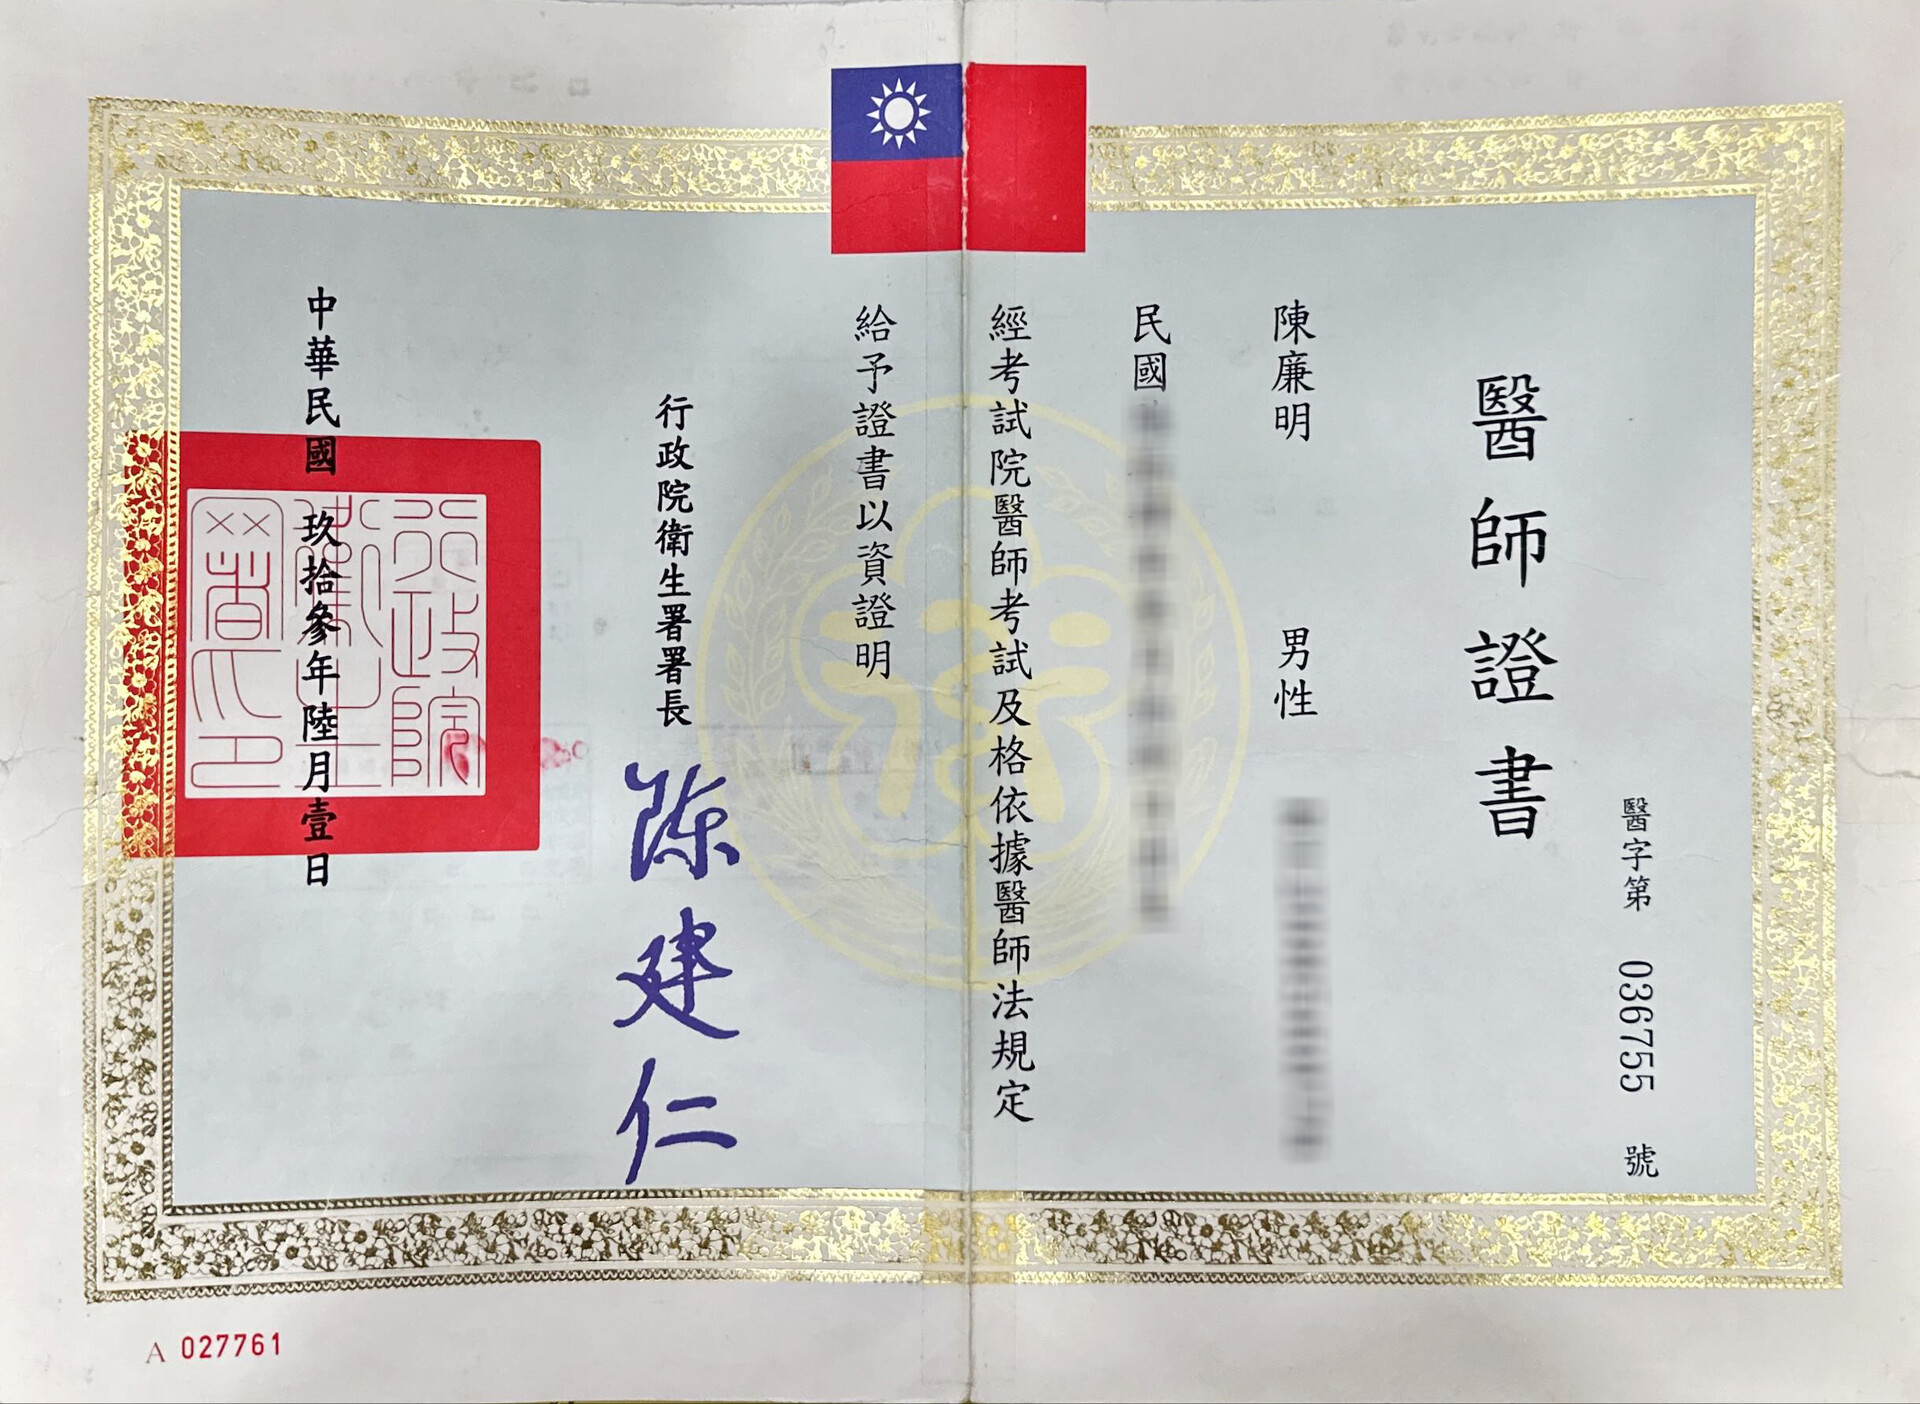 醫師證書
醫字第 036755 號
陳廉明 男性
民國
經考試院醫師考試及格依據醫師法規定
給予證書以資證明
行政院衛生署署長 陳建仁
中華民國 玖拾參年陸月壹日
行政院衛生署印
A 027761